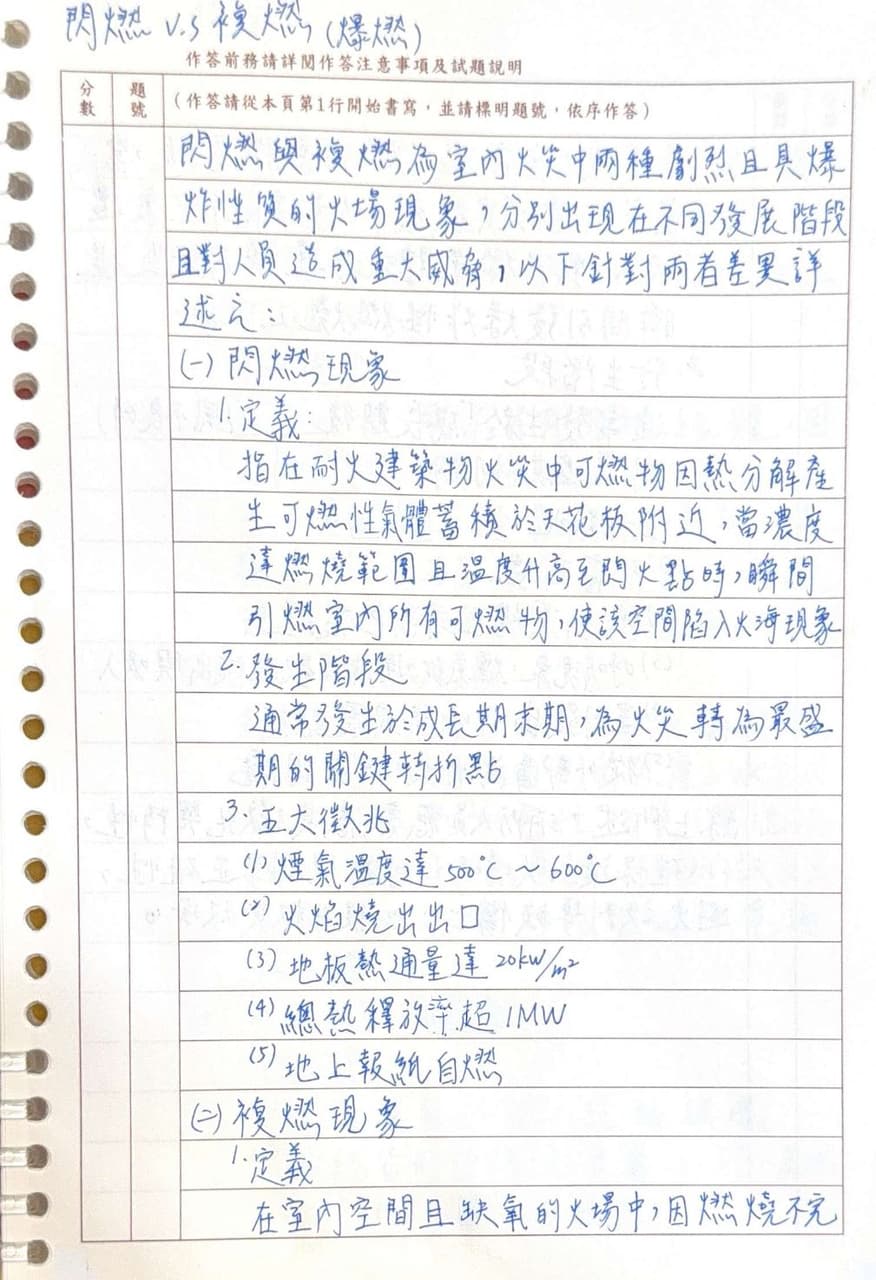 閃燃 V.S 複燃(爆燃)
作答前務請詳閱作答注意事項及試題說明
分數
題號
(作答請從本頁第1行開始書寫,並請標明題號,依序作答)
閃燃與複燃為室內火災中兩種劇烈且具爆
炸性質的火場現象,分別出現在不同發展階段
且對人員造成重大威脅,以下針對兩者差異詳
述之:
(一)閃燃現象
1.定義:
指在耐火建築物火災中可燃物因熱分解產
生可燃性氣體蓄積於天花板附近,當濃度
達燃燒範圍且溫度升高至閃火點時,瞬間
引燃室內所有可燃物,使該空間陷入火海現象
2.發生階段
通常發生於成長期末期,為火災轉為最盛
期的關鍵轉折點
3.五大徵兆
(1)煙氣溫度達500℃~600℃
(2)火焰燒出出口
(3)地板熱通量達20kW/m²
(4)總熱釋放率超1MW
(5)地上報紙自燃
(二)複燃現象
1.定義
在室內空間且缺氧的火場中,因燃燒不完